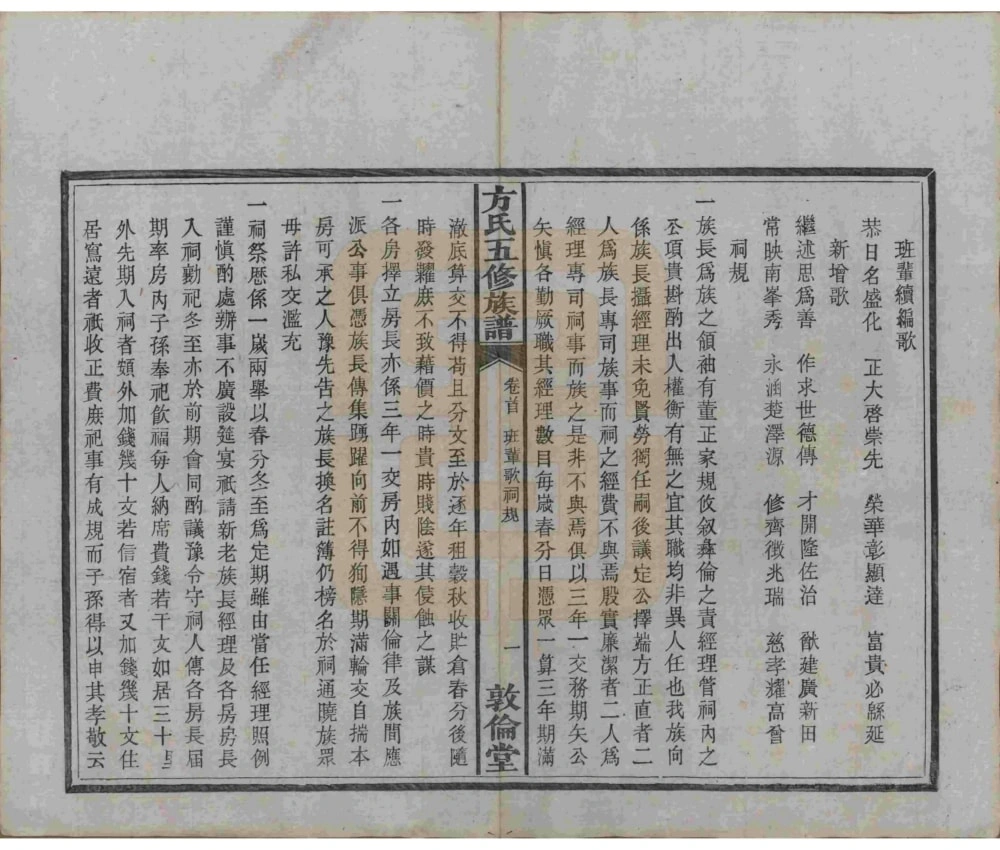 班輩續編歌
恭日名盛化 正大啓崇先 榮華彰顯達 富貴必緜延
新增歌
繼述思爲善 作求世德傳 才開隆佐治 猷建廣新田
常映南峯秀 永涵楚澤源 修齊徵兆瑞 慈孝耀高曾
祠規
一族長爲族之領袖有董正家規攸叙彝倫之責經理管祠內之
公項貴斟酌出入權衡有無之宜其職均非異人任也我族向
係族長攝經理未免賢勞獨任嗣後議定公擇端方正直者二
人爲族長專司族事而祠之經費不與焉殷實廉潔者二人爲
經理專司祠事而族之是非不與焉俱以三年一交務期矢公
矢愼各勤厥職其經理數目每歲春分日憑眾一算三年期滿
方氏五修族譜 卷首 班輩歌祠規 一 敦倫堂
澈底算交不得苟且分文至於逐年租穀秋收貯倉春分後隨
時發糶庶不致藉價之時貴時賤陰遂其侵蝕之謀
一各房擇立房長亦係三年一交房內如遇事關倫律及族間應
派公事俱憑族長傳集踴躍向前不得狥隱期滿輪交自揣本
房可承之人豫先告之族長換名註簿仍榜名於祠通曉族眾
毋許私交濫充
一祠祭歷係一歲兩舉以春分冬至爲定期雖由當任經理照例
謹愼酌處辦事不廣設筵宴祇請新老族長經理及各房房長
入祠勷祀冬至亦於前期會同酌議豫令守祠人傳各房長屆
期率房內子孫奉祀飲福每人納席貴錢若干文如居三十里
外先期入祠者額外加錢幾十文若信宿者又加錢幾十文住
居寫遠者祇收正費庶祀事有成規而子孫得以申其孝敬云